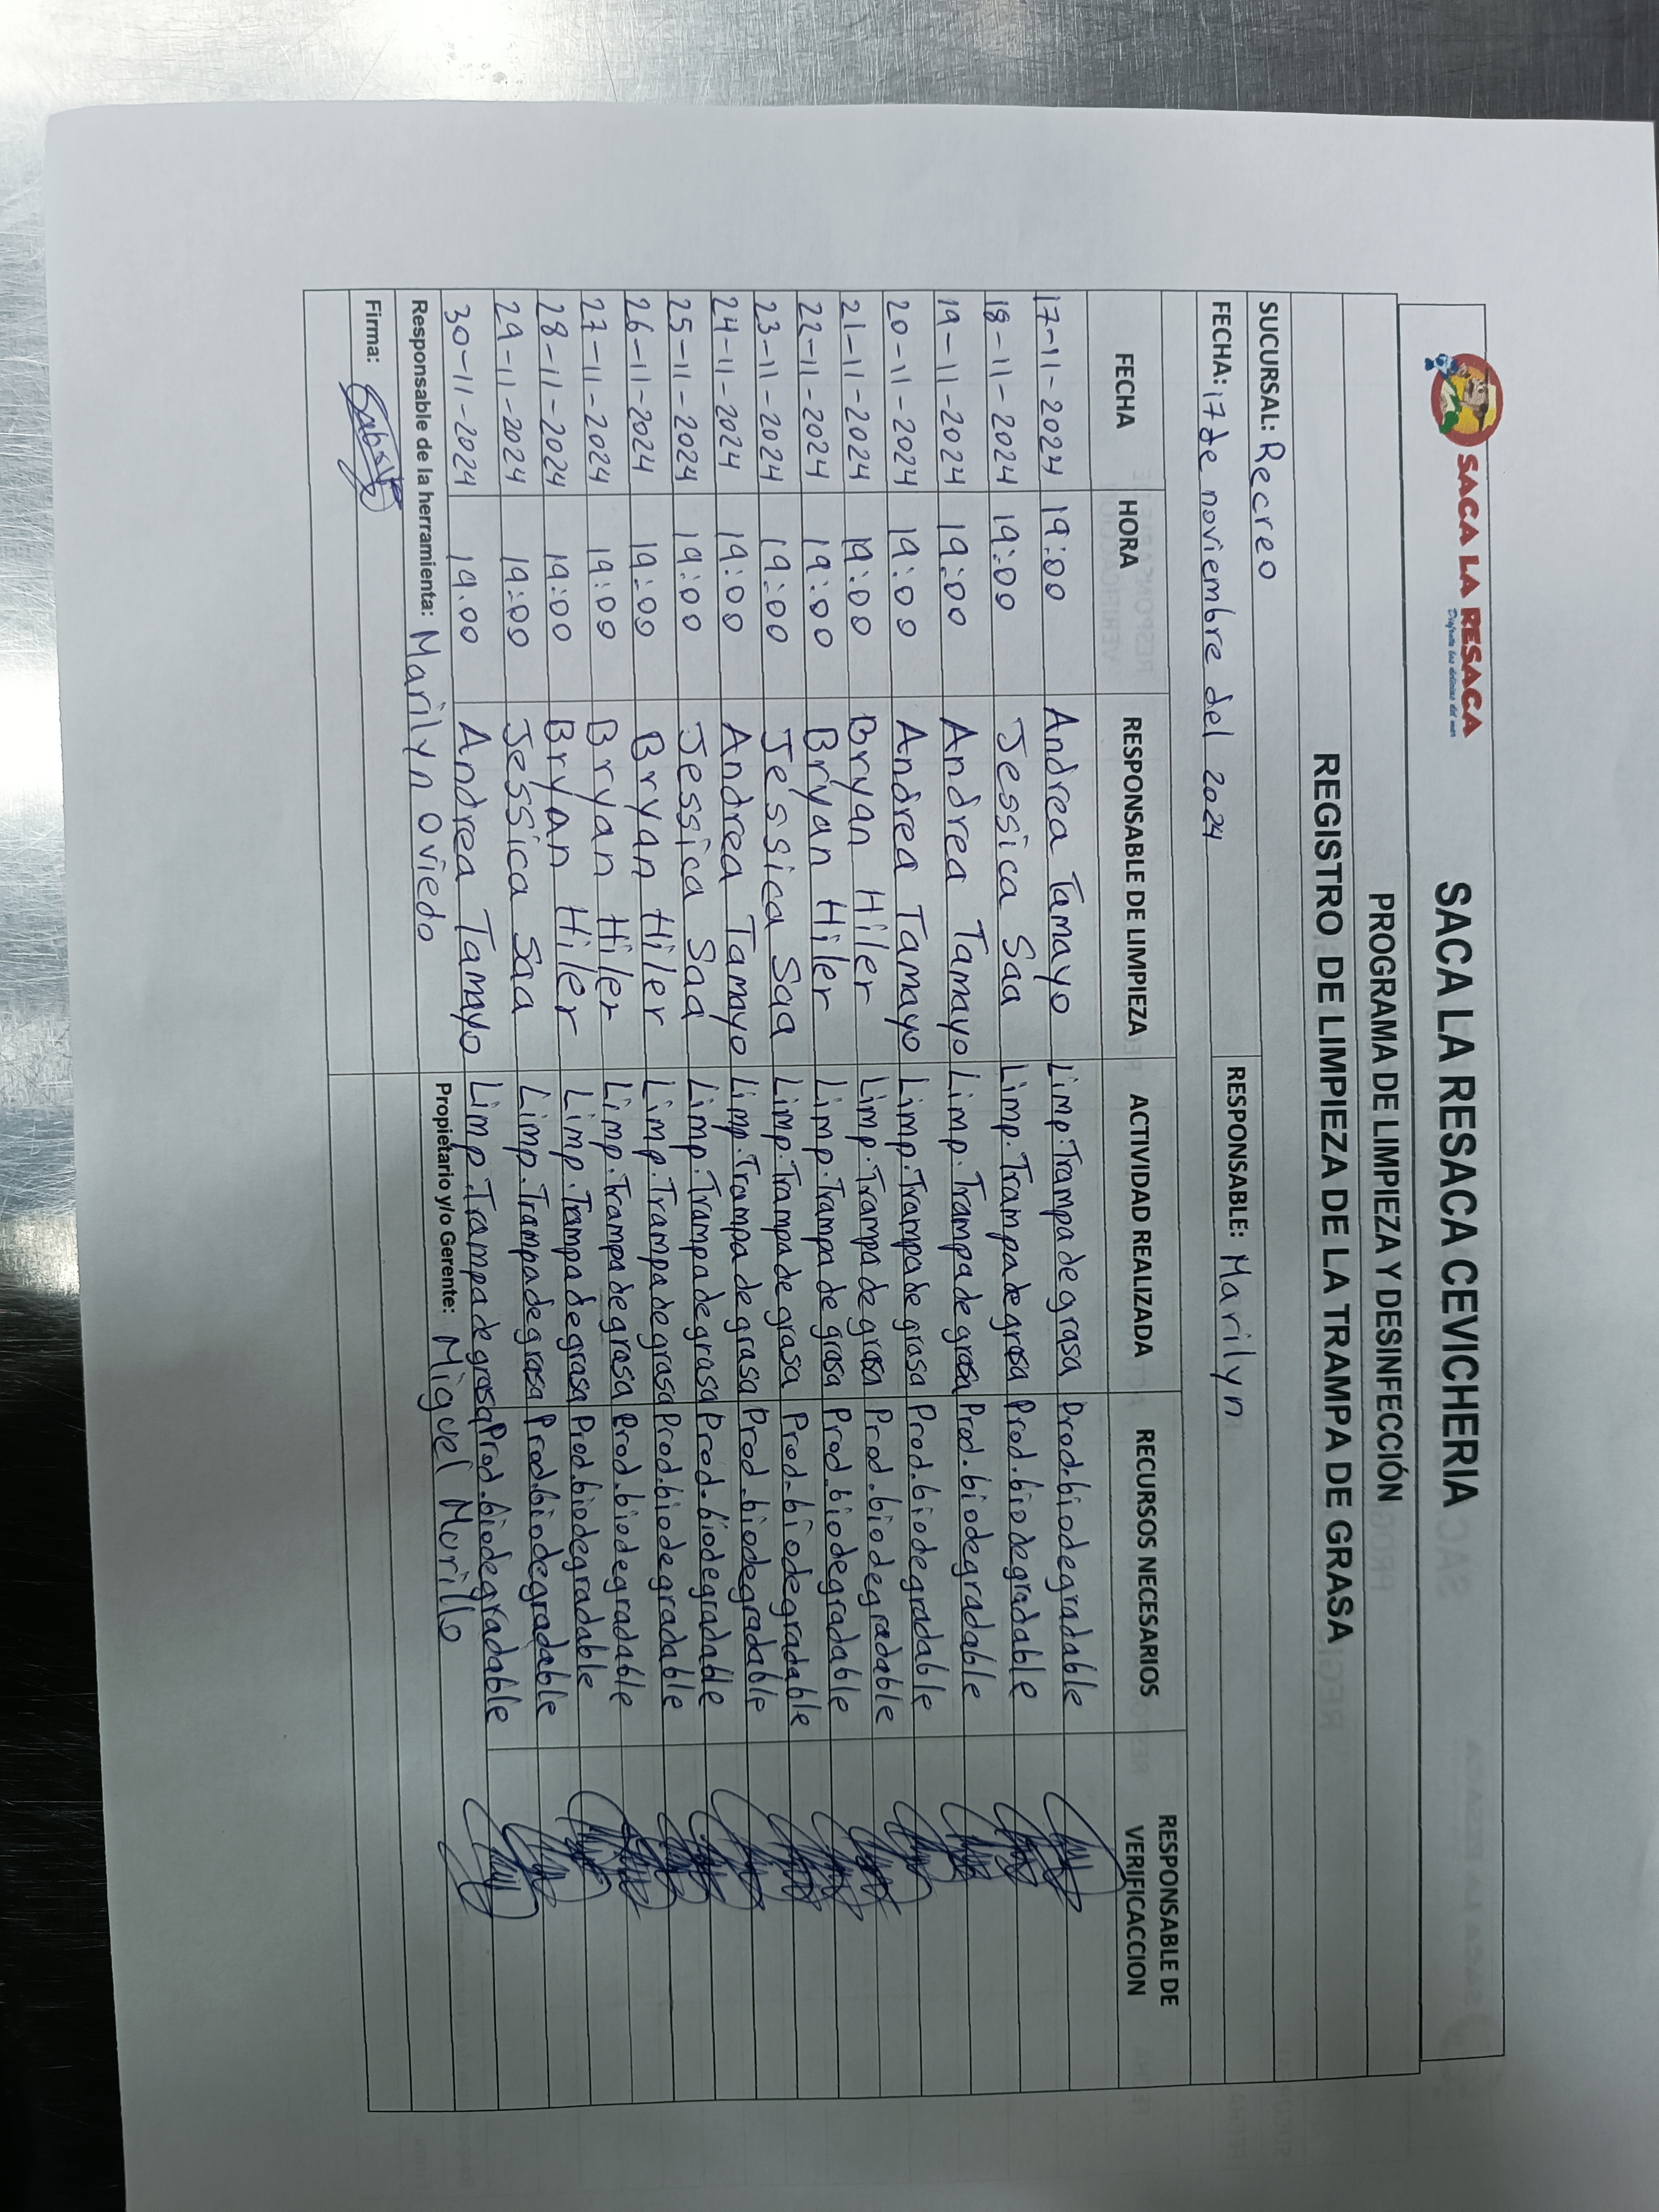 SACA LA RESACA
Disfruta las delicias del mar
SACA LA RESACA CEVICHERIA
PROGRAMA DE LIMPIEZA Y DESINFECCIÓN
REGISTRO DE LIMPIEZA DE LA TRAMPA DE GRASA
SUCURSAL: Recreo
FECHA: 17 de noviembre del 2024 RESPONSABLE: Marilyn
FECHA HORA RESPONSABLE DE LIMPIEZA ACTIVIDAD REALIZADA RECURSOS NECESARIOS RESPONSABLE DE VERIFICACCION
17-11-2024 19:00 Andrea Tamayo Limp. Trampa de grasa Prod. biodegradable
18-11-2024 19:00 Jessica Saa Limp. Trampa de grasa Prod. biodegradable
19-11-2024 19:00 Andrea Tamayo Limp. Trampa de grasa Prod. biodegradable
20-11-2024 19:00 Andrea Tamayo Limp. Trampa de grasa Prod. biodegradable
21-11-2024 19:00 Bryan Hiler Limp. Trampa de grasa Prod. biodegradable
22-11-2024 19:00 Bryan Hiler Limp. Trampa de grasa Prod. biodegradable
23-11-2024 19:00 Jessica Saa Limp. Trampa de grasa Prod. biodegradable
24-11-2024 19:00 Andrea Tamayo Limp. Trampa de grasa Prod. biodegradable
25-11-2024 19:00 Jessica Saa Limp. Trampa de grasa Prod. biodegradable
26-11-2024 19:00 Bryan Hiler Limp. Trampa de grasa Prod. biodegradable
27-11-2024 19:00 Bryan Hiler Limp. Trampa de grasa Prod. biodegradable
28-11-2024 19:00 Bryan Hiler Limp. Trampa de grasa Prod. biodegradable
29-11-2024 19:00 Jessica Saa Limp. Trampa de grasa Prod. biodegradable
30-11-2024 19:00 Andrea Tamayo Limp. Trampa de grasa Prod. biodegradable
Responsable de la herramienta: Marilyn Oviedo Propietario y/o Gerente: Miguel Morillo
Firma: